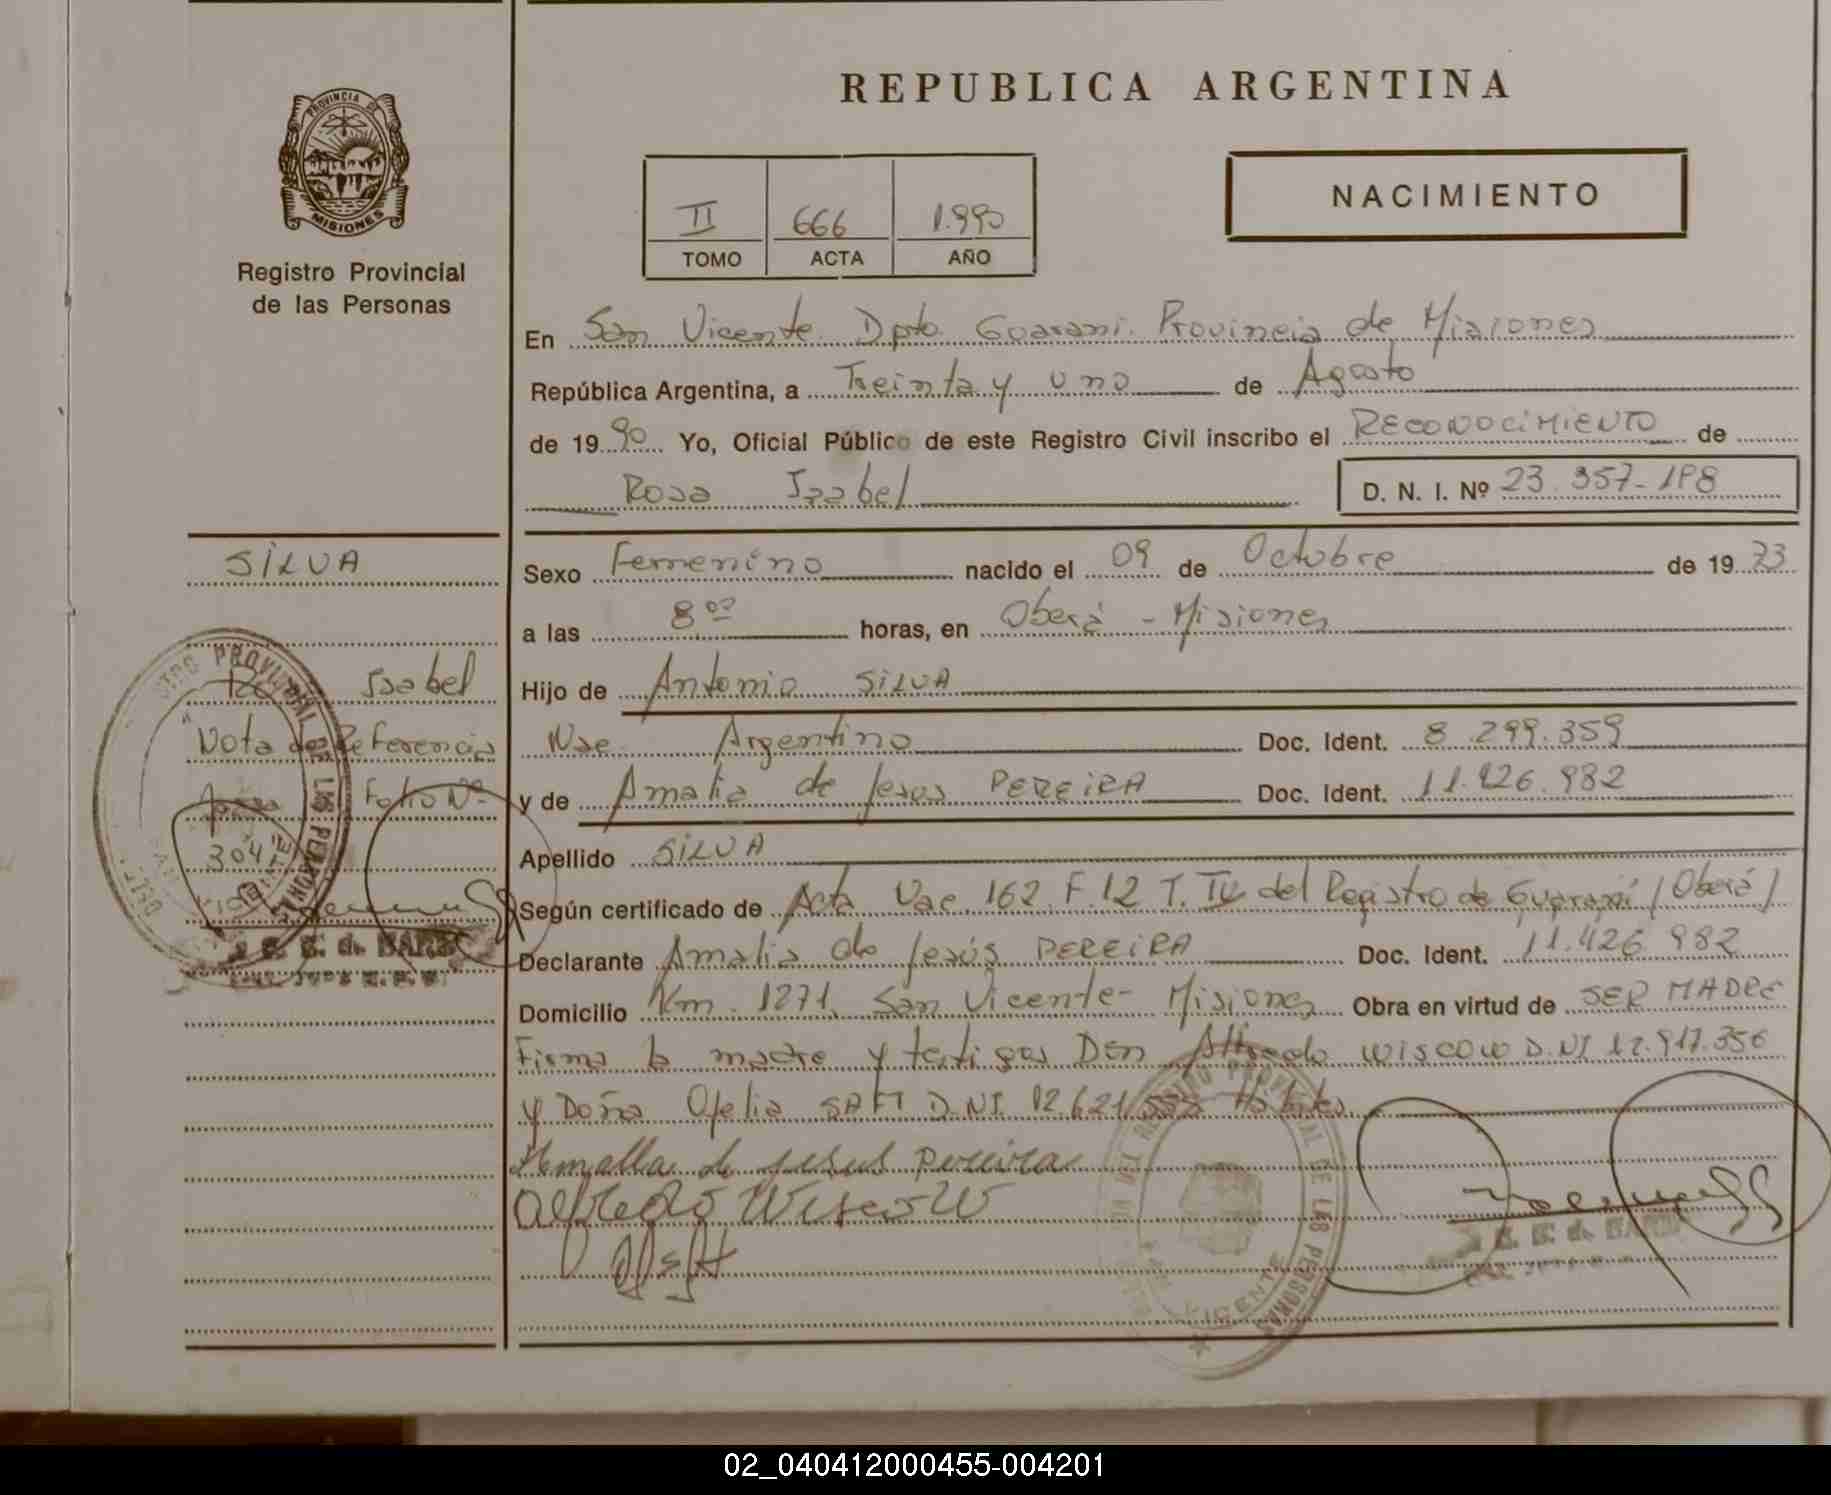 REPUBLICA ARGENTINA
PROVINCIA DE
MISIONES
Registro Provincial
de las Personas
II 666 1.990
TOMO ACTA AÑO
NACIMIENTO
En San Vicente Dpto. Guarani. Provincia de Misiones
República Argentina, a Treinta y uno de Agosto
de 1990 Yo, Oficial Público de este Registro Civil inscribo el RECONOCIMIENTO de
Rosa Isabel D. N. I. Nº 23.357.198
SILVA
Isabel
Nota de Referencia
Folio Nº
304
Sexo Femenino nacido el 09 de Octubre de 1973
a las 8 00 horas, en Oberá - Misiones
Hijo de Antonio SILVA
Nac. Argentino Doc. Ident. 8.299.359
y de Amalia de Jesus PEREIRA Doc. Ident. 11.426.982
Apellido SILVA
Según certificado de Acta Nac 162 F. 12 T. IV del Registro de Guaraní (Oberá)
Declarante Amalia de Jesús PEREIRA Doc. Ident. 11.426.982
Domicilio Km. 1271. San Vicente - Misiones Obra en virtud de SER MADRE
Firma la madre y testigos Don Alfredo WISCOW D.NI 12.917.356
y Doña Ofelia SAFT D.NI. 12.621.555 Hábiles
Amalia de jesus pereira
alfredo Wiscow
REGISTRO PROVINCIAL DE LAS PERSONAS
VICENTE
02_040412000455-004201